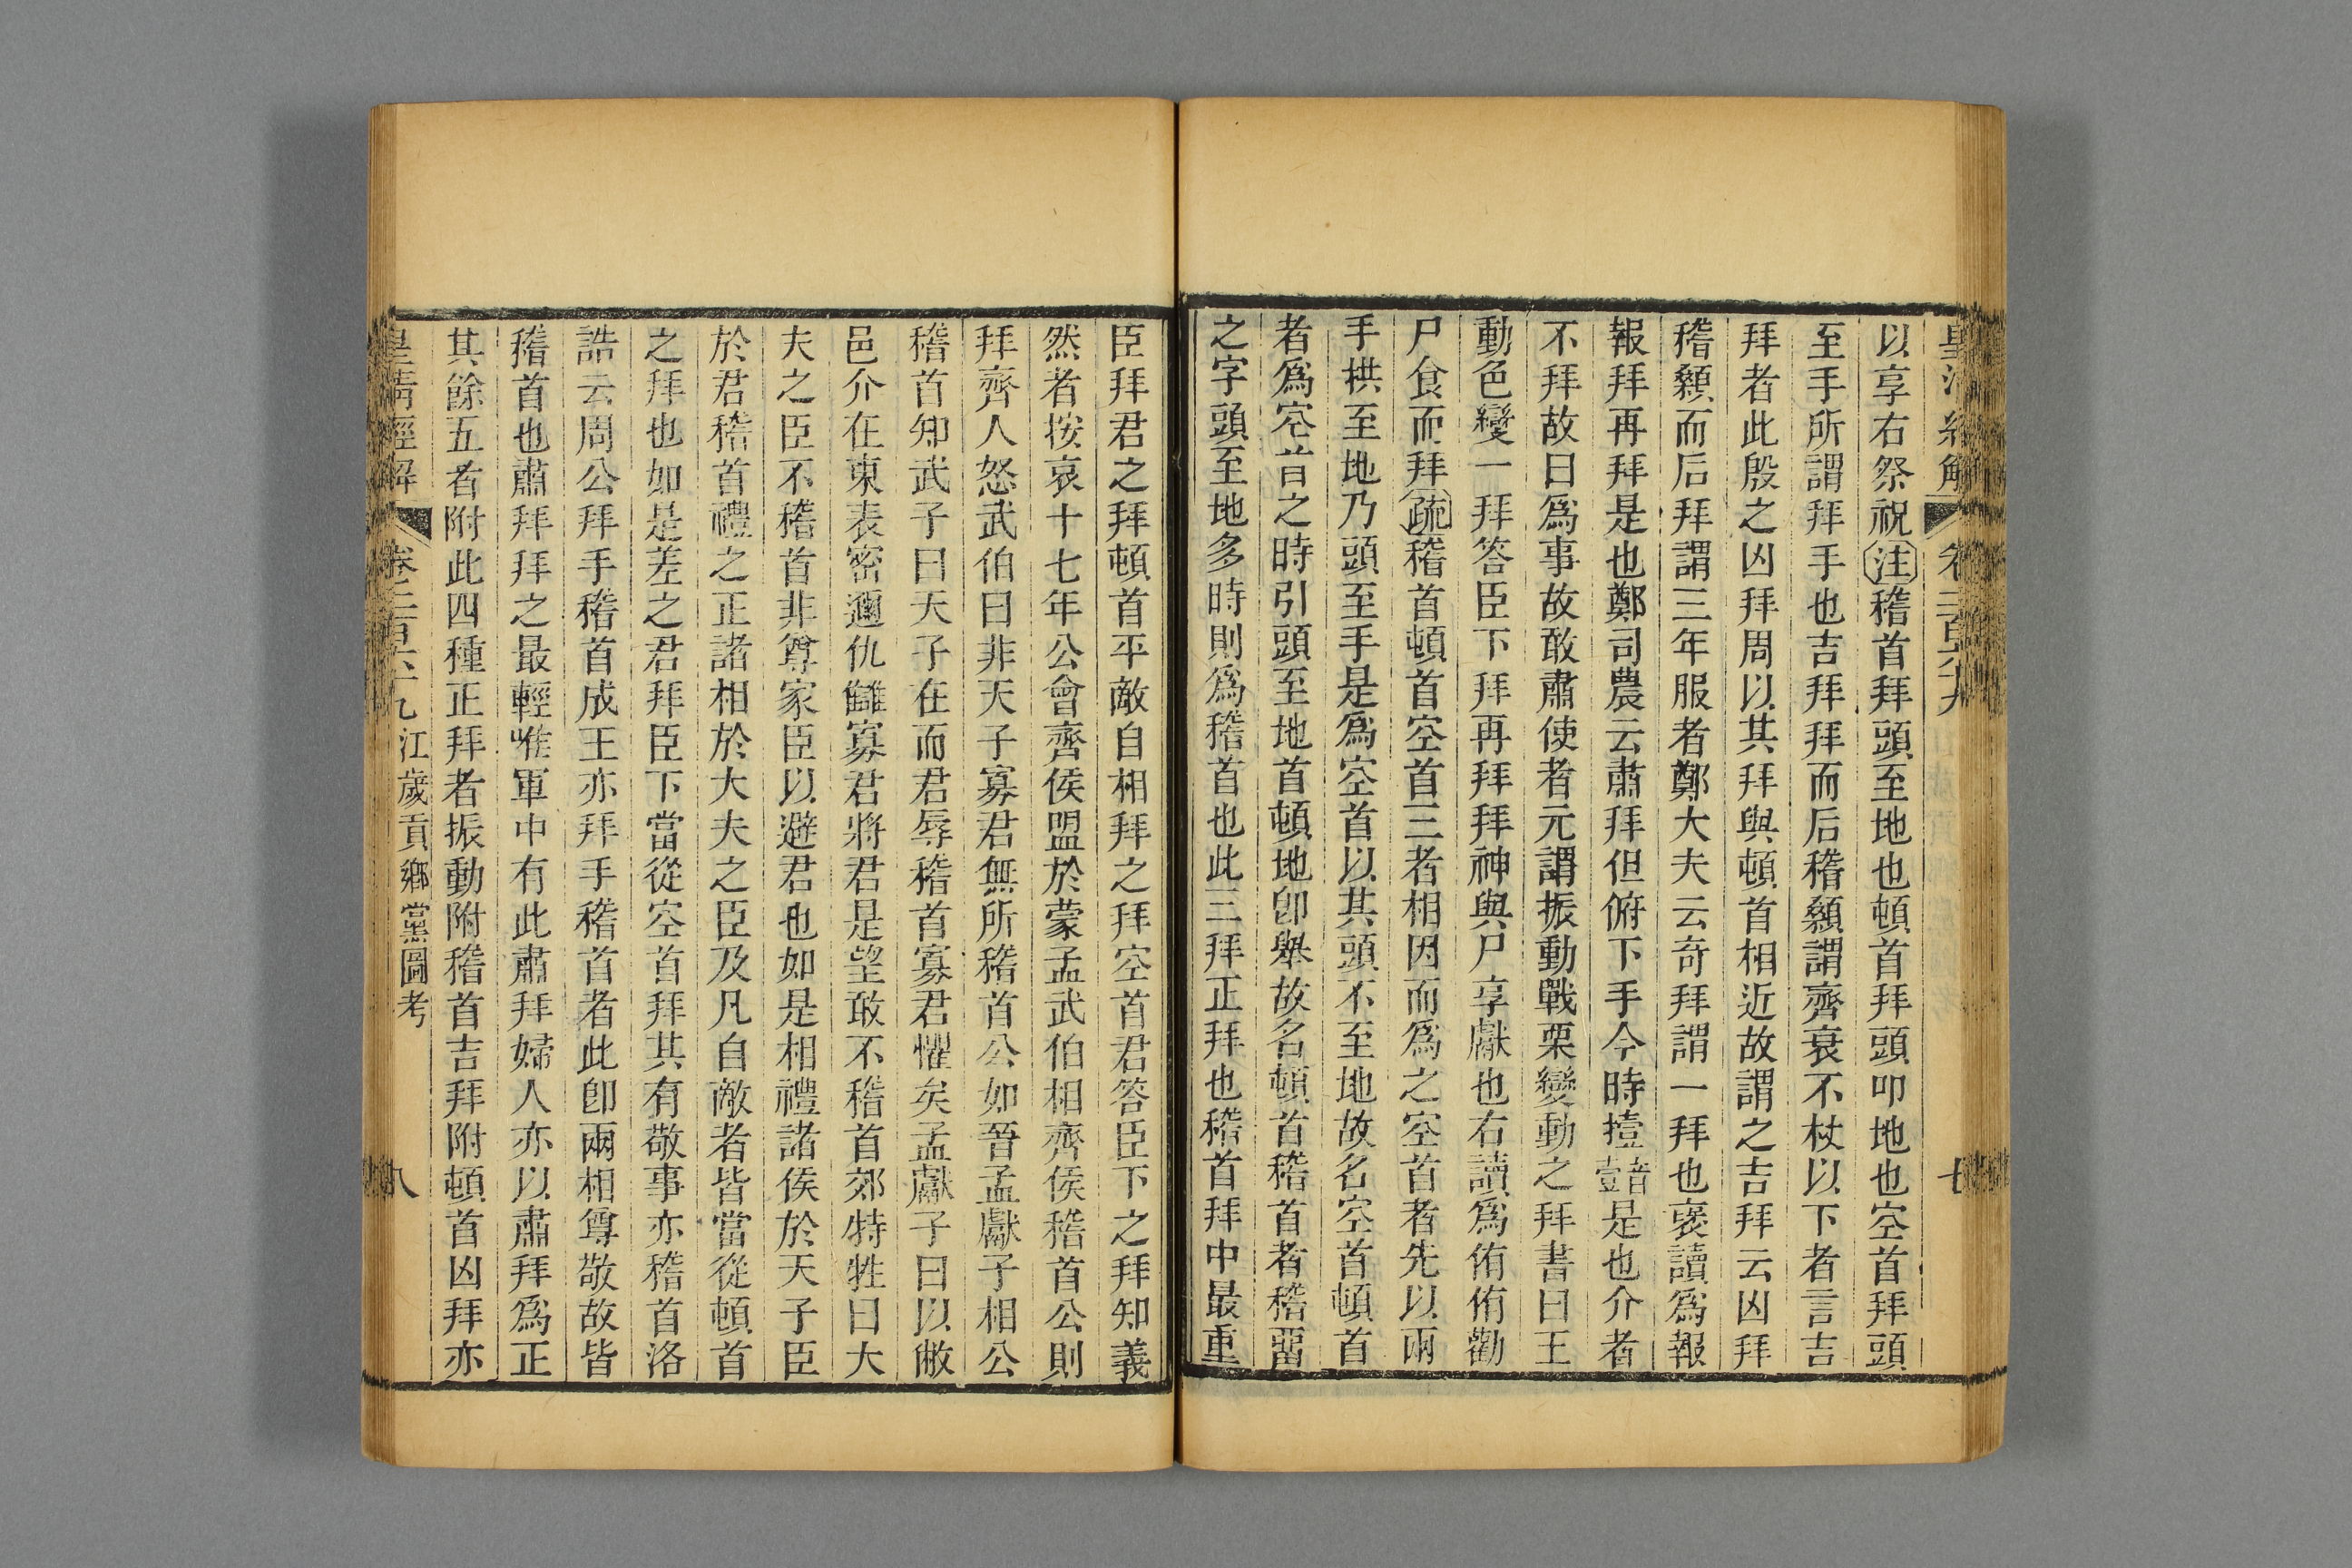 以享右祭祝注稽首拜頭至地也頓首拜頭叩地也空首拜頭
至手所謂拜手也吉拜拜而后稽顙謂齊衰不杖以下者言吉
拜者此殷之凶拜周以其拜與頓首相近故謂之吉拜云凶拜
稽顙而后拜謂三年服者鄭大夫云奇拜謂一拜也褒讀爲報
報拜再拜是也鄭司農云肅拜但俯下手今時撎音壹是也介者
不拜故曰爲事故敢肅使者元謂振動戰栗變動之拜書曰王
動色變一拜答臣下拜再拜拜神與尸享獻也右讀爲侑侑勸
尸食而拜疏稽首頓首空首三者相因而爲之空首者先以兩
手拱至地乃頭至手是爲空首以其頭不至地故名空首頓首
者爲空首之時引頭至地首頓地卽舉故名頓首稽首者稽畱
之字頭至地多時則爲稽首也此三拜正拜也稽首拜中最重
臣拜君之拜頓首平敵自相拜之拜空首君答臣下之拜知義
然者按哀十七年公會齊侯盟於蒙孟武伯相齊侯稽首公則
拜齊人怒武伯曰非天子寡君無所稽首公如晉孟獻子相公
稽首知武子曰天子在而君辱稽首寡君懼矣孟獻子曰以敝
邑介在東表密邇仇讎寡君將君是望敢不稽首郊特牲曰大
夫之臣不稽首非尊家臣以避君也如是相禮諸侯於天子臣
於君稽首禮之正諸相於大夫之臣及凡自敵者皆當從頓首
之拜也如是差之君拜臣下當從空首拜其有敬事亦稽首洛
誥云周公拜手稽首成王亦拜手稽首者此卽兩相尊敬故皆
稽首也肅拜拜之最輕惟軍中有此肅拜婦人亦以肅拜爲正
其餘五者附此四種正拜者振動附稽首吉拜附頓首凶拜亦
皇清經解 卷二百六十九 江歲貢鄉黨圖考 八